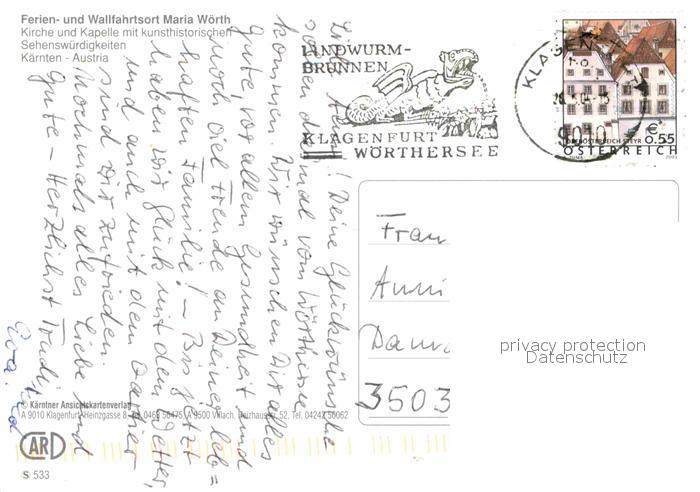 Ferien- und Wallfahrtsort Maria Wörth
Kirche und Kapelle mit kunsthistorischen
Sehenswürdigkeiten
Kärnten - Austria
LINDWURM-
BRUNNEN
KLAGENFURT
WÖRTHERSEE
KLAGEN
ÖSTERREICH STEYR
€
0.55
ÖSTERREICH
! Deine Glückwünsche
sollen mal vom Wörthersee
kommen. Wir wünschen Dir alles
Gute, vor allem Gesundheit und
noch viel Freude an Deiner leb=
haften Familie! – Bis jetzt
haben wir Glück mit dem Wetter,
und auch mit dem Quartier
sind wir zufrieden.
Nochmals alles Liebe und
Gute – Herzlichst Trudi
Frau
Anni
3503
privacy protection
Datenschutz
© Kärntner Ansichtskartenverlag
A 9010 Klagenfurt, Heinzgasse 8, Tel. 0463 56475, A 9500 Villach, 52, Tel. 04242
CARD
S 533